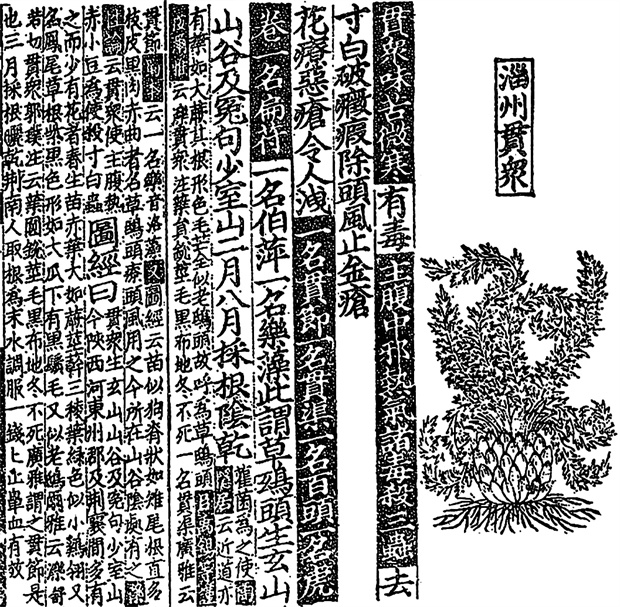 淄州貫衆
貫衆味苦微寒有毒主腹中邪熱氣諸毒殺三蟲去
寸白破癥瘕除頭風止金瘡
花療惡瘡令人洩一名貫節一名貫渠一名百頭一名虎
卷一名扁苻一名伯萍一名藥藻此謂草鴟頭生玄山
山谷及冤句少室山二月八月採根陰乾
雚菌為之使陶隱居云近道亦
有葉如大蕨其根形色毛芒全似老鴟頭故呼為草鴟頭
云濼貫衆注葉員銳莖毛黑布地冬不死一名貫渠廣雅云
貫節云一名樂音洛藻又圖經云苗似狗脊狀如雉尾根直多
枝皮黑肉赤曲者名草鴟頭療頭風用之今所在山谷陰處有之藥
性論云貫衆使主腹熱
赤小豆為使殺寸白蟲
圖經曰
貫衆生玄山山谷及冤句少室山
今陝西河東州郡及荊襄間多有
之而少有花者春生苗赤葉大如蕨莖幹三稜葉綠色似小鷄翎又
名鳳尾草根紫黑色形如大瓜下有黑鬚毛又似老鴟爾雅云濼舒
若切貫衆郭璞注云葉圓銳莖毛黑布地冬不死廣雅謂之貫節是
也三月採根曬乾荊南人取根為末水調服一錢匕止鼻血有效